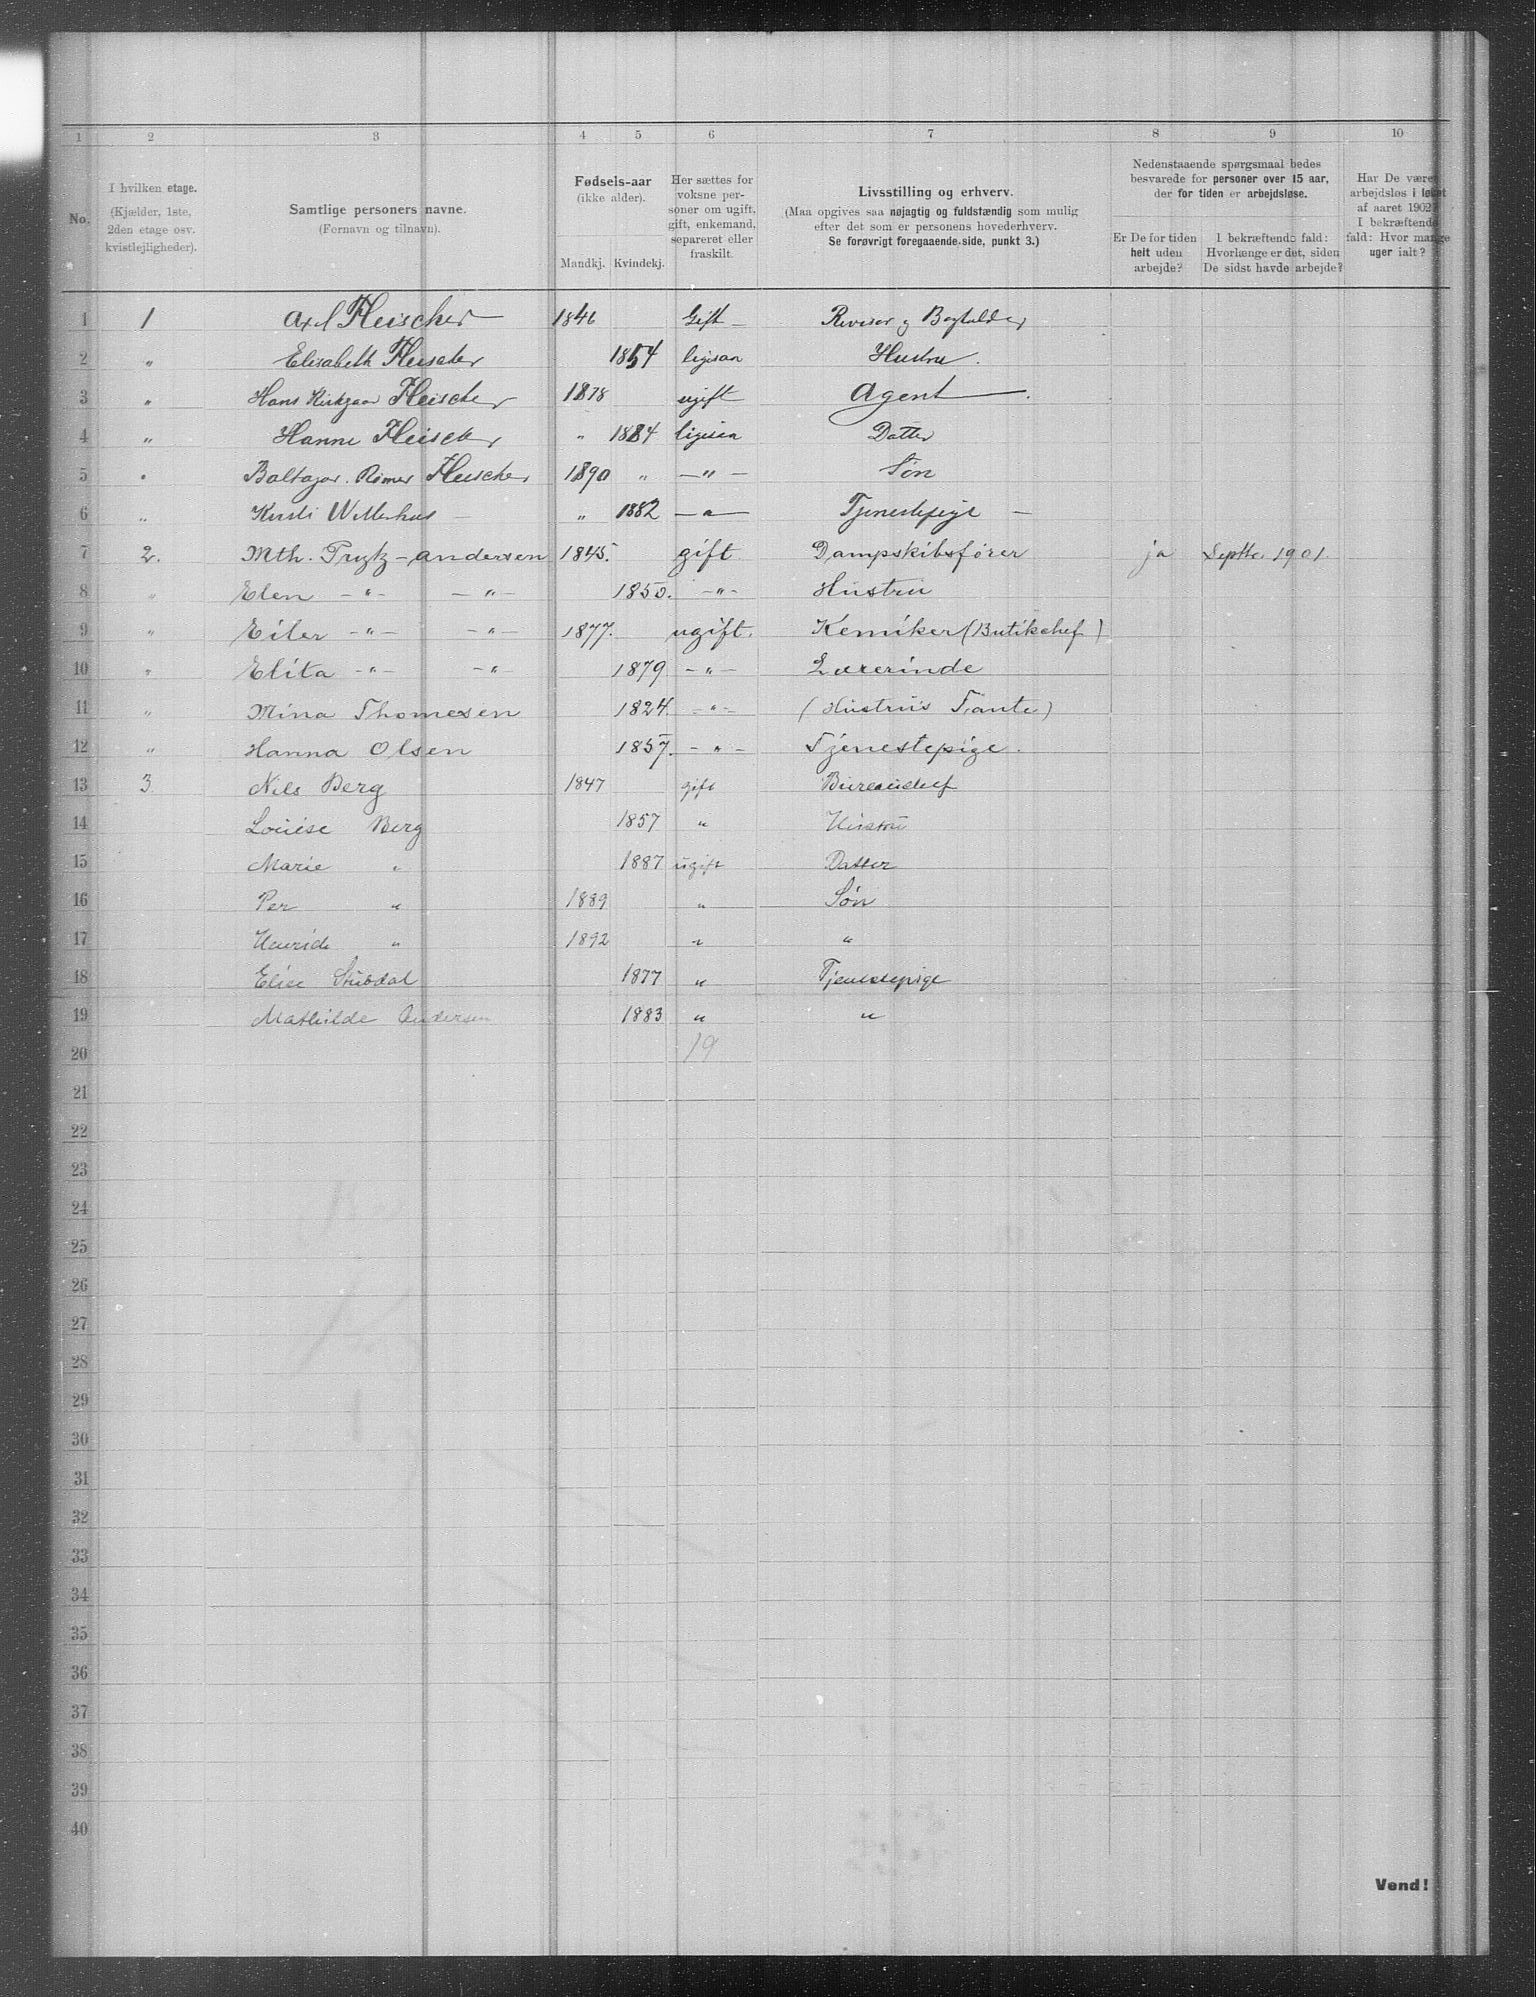 1 2 3 4 5 6 7 8 9 10
No.
I hvilken etage.
(Kjælder, 1ste,
2den etage osv.
kvistlejligheder).
Samtlige personers navne.
(Fornavn og tilnavn).
Fødsels-aar
(ikke alder).
Mandkj. Kvindekj.
Her sættes for
voksne per-
soner om ugift,
gift, enkemand,
separeret eller
fraskilt.
Livsstilling og erhverv.
(Maa opgives saa nøjagtig og fuldstændig som mulig
efter det som er personens hovederhverv.
Se forøvrigt foregaaende side, punkt 3.)
Nedenstaaende spørgsmaal bedes
besvarede for personer over 15 aar,
der for tiden er arbejdsløse.
Er De for tiden
helt uden
arbejde?
I bekræftende fald:
Hvorlænge er det, siden
De sidst havde arbejde?
Har De været
arbejdsløs i løbet
af aaret 1902?
I bekræftende
fald: Hvor mange
uger ialt?
1 1 Axel Fleischer 1846 Gift Revisor og Bogholder
2 " Elisabeth Fleischer 1854 ligesaa Hustru.
3 " Hans Fleischer 1878 ugift Agent
4 " Hanne Fleischer " 1884 ligesaa Datter
5 " Baltazar Rømer Fleischer 1890 " —"— Søn
6 " Kirsti " 1882 —"— Tjenestepige —
7 2. Mth. Prytz-Andersen 1845. gift Dampskibsfører ja Septbr. 1901.
8 " Elen —"— —"— 1850. —"— Hustru
9 " Eiler —"— —"— 1877. ugift. Kemiker (Butikchef)
10 " Elita —"— —"— 1879 —"— Lærerinde
11 " Mina Thomesen 1824. —"— (Hustrus Tante)
12 " Hanna Olsen 1857. —"— Tjenestepige.
13 3. Nils Berg 1847 gift Bureauchef
14 Louise Berg 1857 " Hustru
15 Marie " 1887 ugift Datter
16 Per " 1889 " Søn
17 Henrich " 1892 " "
18 Elise Stubdal 1877 " Tjenestepige
19 Mathilde Andersen 1883 " "
20 19
21
22
23
24
25
26
27
28
29
30
31
32
33
34
35
36
37
38
39
40
Vend!